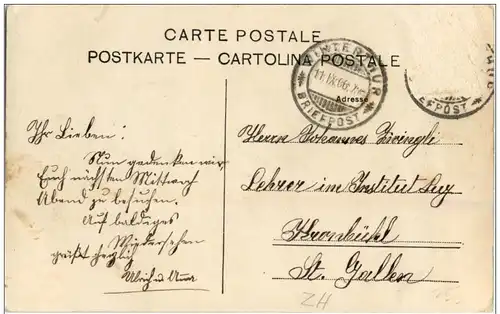 CARTE POSTALE
POSTKARTE — CARTOLINA POSTALE
WINTERTHUR
11.IX.06
BRIEFPOST
EFPOST
Adresse
Ihr Lieben!
Nun gedenken wir
Euch nächsten Mittwoch
Abend zu besuchen.
Auf baldiges
Wiedersehen
grüßt herzlich
Ulrich u Anna
Herrn Johannes Zwingli
Lehrer im Institut
Kronbühl
St. Gallen
ZH